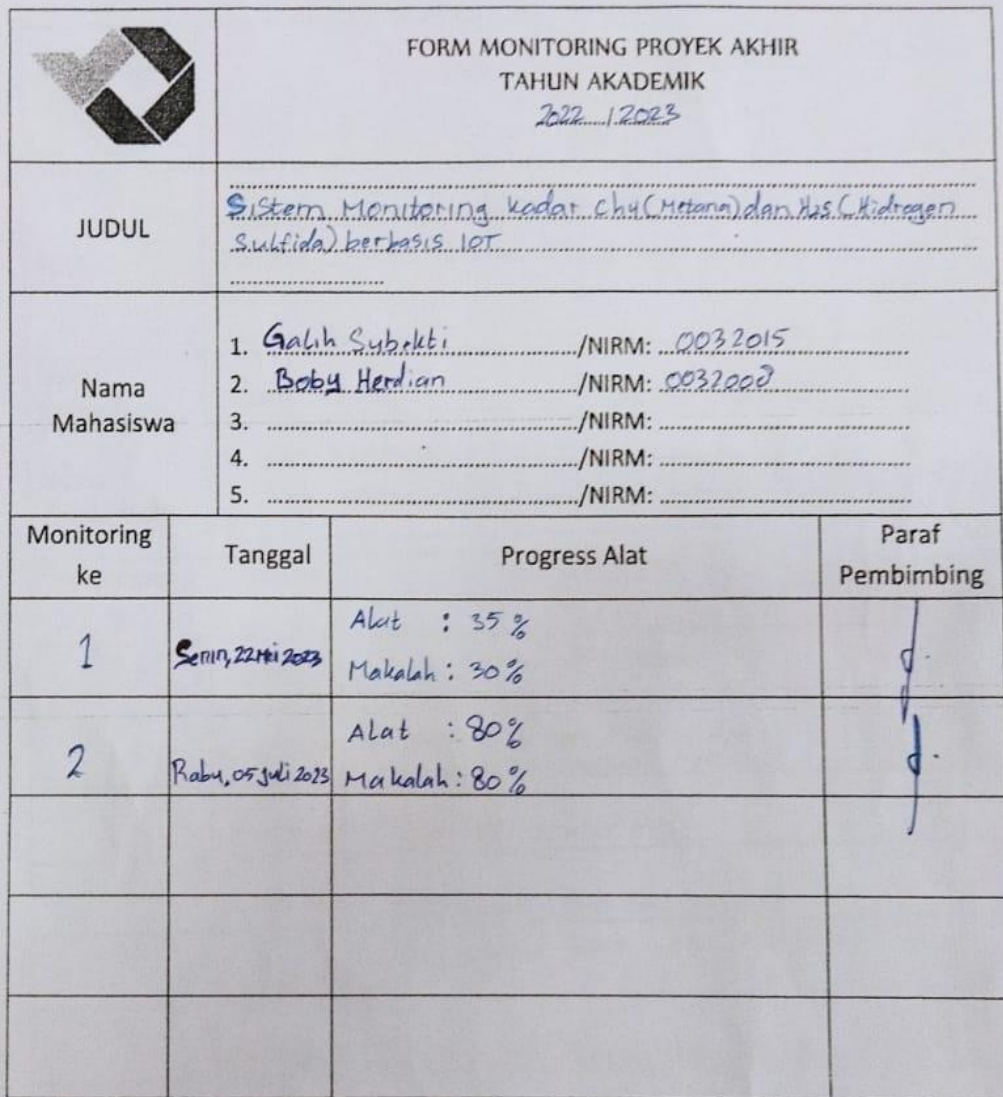 FORM MONITORING PROYEK AKHIR
TAHUN AKADEMIK
2022 / 2023
JUDUL
Sistem Monitoring Kadar CH4 (Metana) dan H2S (Hidrogen
Sulfida) berbasis IOT
Nama
Mahasiswa
1. Galih Subekti /NIRM: 0032015
2. Boby Herdian /NIRM: 0032008
3. /NIRM:
4. /NIRM:
5. /NIRM:
Monitoring
ke
Tanggal
Progress Alat
Paraf
Pembimbing
1
Senin, 22 Mei 2023
Alat : 35 %
Makalah : 30 %
2
Rabu, 05 Juli 2023
Alat : 80 %
Makalah : 80 %